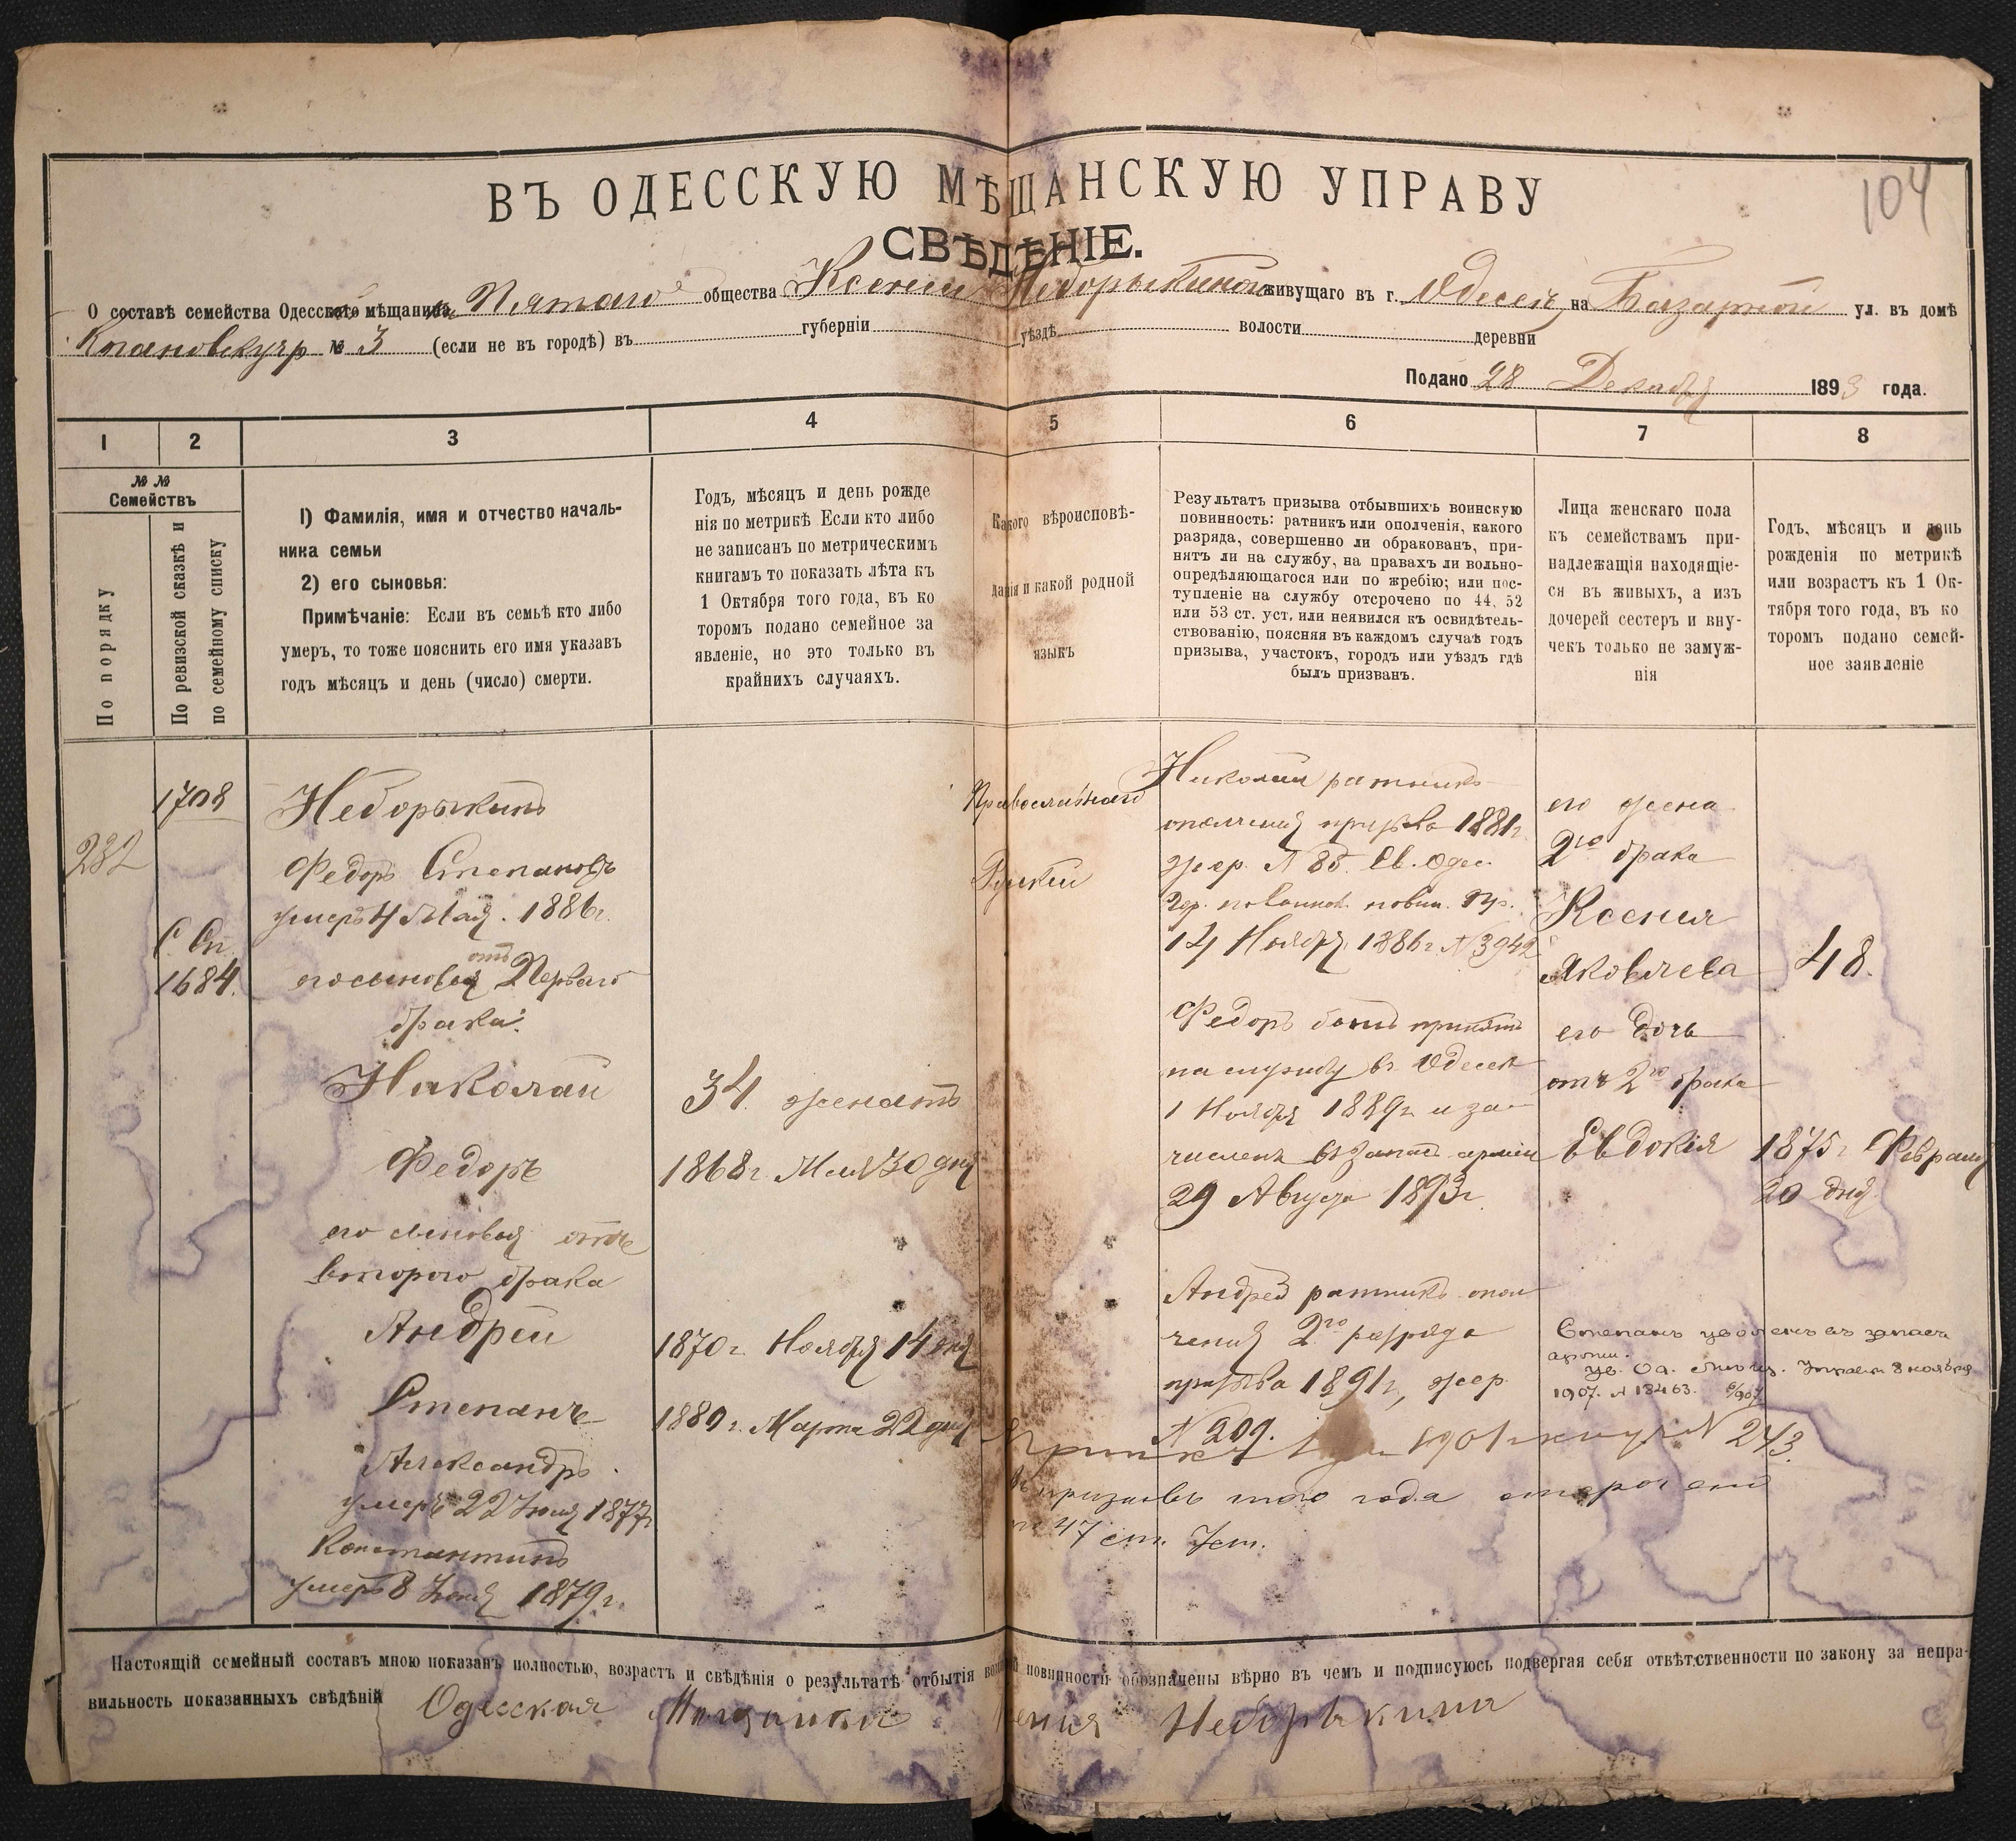 104
ВЪ ОДЕССКУЮ МѢЩАНСКУЮ УПРАВУ
СВѢДѢНІЕ.
О составѣ семейства Одесскаго мѣщанина Пятаго общества Ксении Неборыкиной живущаго въ г. Одессѣ на Базарной ул. въ домѣ
№ 3 (если не въ городѣ) въ губерніи уѣздѣ волости деревни
Подано 28 Декабря 1893 года.
1 2 3 4 5 6 7 8
№ №
Семействъ
По порядку
По ревизской сказкѣ и
по семейному списку
1) Фамилія, имя и отчество началь-
ника семьи
2) его сыновья:
Примѣчаніе: Если въ семьѣ кто либо
умеръ, то тоже пояснить его имя указавъ
годъ мѣсяцъ и день (число) смерти.
Годъ, мѣсяцъ и день рожде
нія по метрикѣ Если кто либо
не записанъ по метрическимъ
книгамъ то показать лѣта къ
1 Октября того года, въ ко
торомъ подано семейное за
явленіе, но это только въ
крайнихъ случаяхъ.
Какого вѣроисповѣ-
данія и какой родной
языкъ
Результатъ призыва отбывшихъ воинскую
повинность: ратникъ или ополченія, какого
разряда, совершенно ли обракованъ, при-
нятъ ли на службу, на правахъ ли вольно-
опредѣляющагося или по жребію; или пос-
тупленіе на службу отсрочено по 44, 52
или 53 ст. уст. или неявился къ освидѣтель-
ствованію, поясняя въ каждомъ случаѣ годъ
призыва, участокъ, городъ или уѣздъ гдѣ
былъ призванъ.
Лица женскаго пола
къ семействамъ при-
надлежащія находящіе-
ся въ живыхъ, а изъ
дочерей сестеръ и вну-
чекъ только не замуж-
нія
Годъ, мѣсяцъ и день
рожденія по метрикѣ
или возрастъ къ 1 Ок-
тября того года, въ ко
торомъ подано семей-
ное заявленіе
232
1708
С. Сп.
1684.
Неборыкинъ
Федоръ Степановъ
умеръ 4 Мая. 1886г.
его сыновья отъ Перваго
брака:
Николай
Федоръ
его сыновья отъ
второго брака
Андрей
Степанъ
Александръ
умеръ 22 Іюня 1877г
Константинъ
умеръ 8 Іюня 1879г.
34. женатъ
1868г. Мая 30 дня
1870г. Ноября 14 дня
1880г. Марта 22 дня
Православнаго
Рускій
Николай ратникъ
ополченія призыва 1881г
жер. № 85. Св. Одес.
Гор. по воинск. повин. Пр.
14 Ноября 1886г № 3942
Федоръ былъ принятъ
на службу въ Одессѣ
1 Ноября 1889г и за-
численъ въ запас арміи
29 Августа 1893г
Андрей ратникъ опол
ченія 2го разряда
призыва 1891г, жер.
№ 209.
1901г № 243.
въ призывъ того года отсрочено
по 47 ст. Уст.
его жена
2го брака
Ксения
Яковлева
его дочь
отъ 2го брака
Евдокія
48.
1875г Февраля
20 дня.
Степанъ уволенъ въ запасъ
арміи.
Ув. Од. Управы 8 ноября
1907. № 13463.
Настоящій семейный составъ мною показанъ полностью, возрастъ и свѣдѣнія о результатѣ отбытія воинской повинности обозначены вѣрно въ чемъ и подписуюсь подвергая себя отвѣтственности по закону за непра-
вильность показанныхъ свѣдѣній Одесская Мѣщанка Ксения Неборыкина